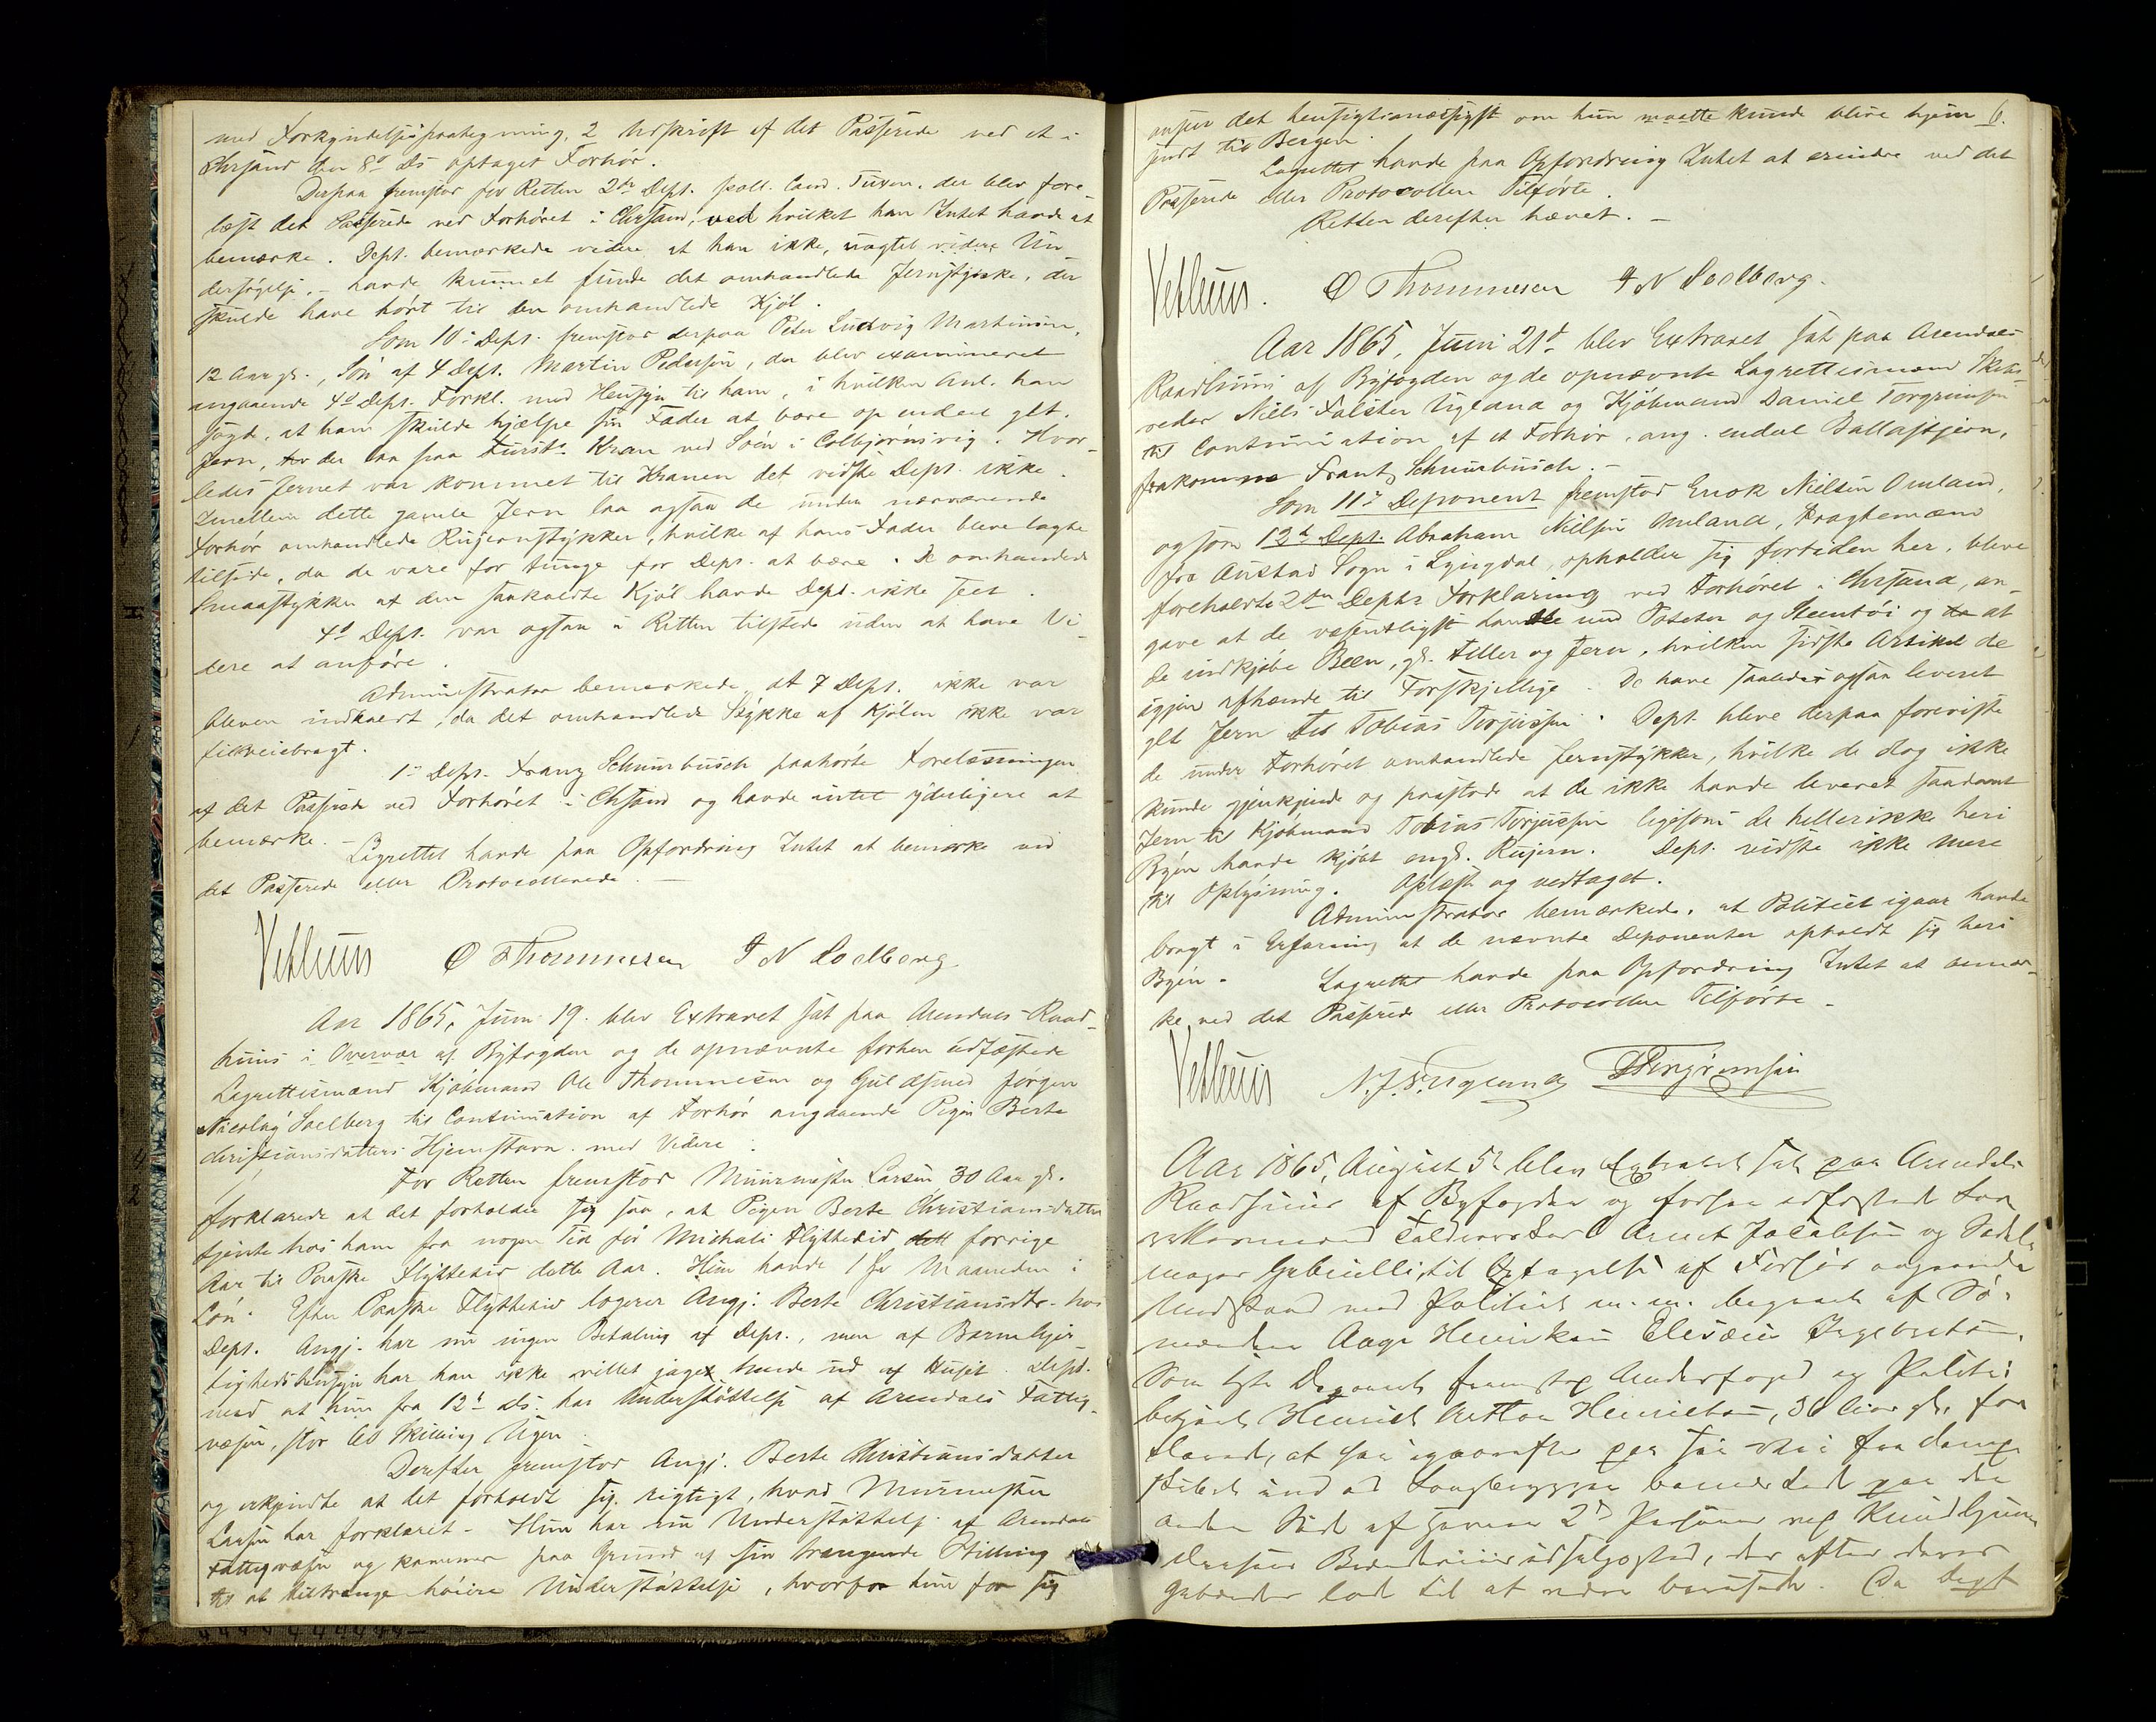 med Forkyndelsespaategning, 2 Udskrift af det Passerede ved et i
Chrsand den 8de ds optaget Forhør.
Derpaa fremstod for Retten 2det Dept. poll. Cand. Tuxen, der blev fore-
læst det Passerede ved Forhøret i Chrsand, ved hvilket han Intet havde at
bemærke. Dept. bemærkede videre at han ikke, uagtet videre Un-
dersøgelse, - havde kunnet finde det omhandlede Jernstykke, der
skulde have hørt til den omhandlede Kjøl.
Som 10de Dept. fremstod derpaa Peter Ludvig Martinsen,
12 Aar gl., Søn af 4 Dept. Martin Pedersen, der blev examineret
angaaende 4de Depts. Forkl. med Hensyn til ham, i hvilken Anl. han
sagde, at han skulde hjælpe sin Fader at bære op endeel glt.
Jern, der laa paa Kran ved Søen i Colbjørnsvig. Hvor-
ledes Jernet var kommet til Kranen det vidste Dept. ikke.
Imellem dette gamle Jern laa ogsaa de under nærværende
Forhør omhandlede Rujernstykker, hvilke af hans Fader bleve lagte
tilside, da de vare for tunge for Dept. at bære. De omhandlede
Smaastykker af den saakaldte Kjøl havde Dept. ikke seet.
4de Dept. var ogsaa i Retten tilstede uden at have Vi-
dere at anføre.
Administrator bemærkede, at 7 Dept. ikke var
bleven indkaldt, da det omhandlede Stykke af Kjølen ikke var
tilveiebragt.
1ste Dept. Franz Schnurbusch paahørte Forelæsningen
af det Passerede ved Forhøret i Chrsand og havde intet yderligere at
bemærke. -
Lagrettet havde paa Opfordring Intet at bemærke ved
det Passerede eller Protocollerede. -
Vetlhuus O Thommesen J N Soelberg
Aar 1865, Juni 19. blev Extraret sat paa Arendals Raad-
huus i Overvær af Byfogden og de opnævnte forhen edfæstede
Lagrettesmænd Kjøbmand Ole Thommesen og Guldsmed Jørgen
Nicolay Soelberg til Continuation af Forhør angaaende Pigen Berte
Christiansdatters Hjemstavn med Videre.
For Retten fremstod Muurmester Larsen 30 Aar gl.
forklarede at det forholder sig saa, at Pigen Berte Christiansdatter
tjente hos ham fra nogen Tid før Michaeli Flyttetid forrige
Aar til Paaske Flyttetid dette Aar. Hun havde 1 Maaneden i
Løn. Efter Paaske Flyttetid logerer Angj. Berte Christiansdtr. hos
Dept. Angj. har nu ingen Betaling af Dept., men af Barmhjer-
tighedshensyn har han ikke villet jaget hende ud af Huset. Dept.
med at hun fra 12te ds. har Understøttelse af Arendals Fattig-
væsen, stor 60 Skilling Ugen.
Derefter fremstod Angj. Berte Christiansdatter
og erkjendte at det forholdt sig rigtigt, hvad Muurmester
Larsen har forklaret. - Hun har nu Understøttelse af Arendals
Fattigvæsen og kommer paa Grund af sin trængende Stilling
til at tiltrænge høiere Understøttelse, hvorfor hun for sig
anser det hensigtsmæssigst om hun maatte kunde blive hjem 6.
sendt til Bergen.
Lagrettet havde paa Opfordring Intet at erindre ved det
Passerede eller Protocollen Tilførte.
Retten derefter hævet. -
Vetlhuus. O Thommesen J N Soelberg.
Aar 1865, Juni 21de blev Extraret sat paa Arendals
Raadhuus af Byfogden og de opnævnte Lagrettesmænd Skibs-
reder Niels Falster Ugland og Kjøbmand Daniel Torgrimsen
til Continuation af et Forhør, ang. endeel Ballastjern,
frakommen Frantz Schnurbusch. -
Som 11te Deponent fremstod Enok Nielsen Omland,
og som 12te Dept. Abraham Nielsen Omland, Fragtemænd
fra Austad Sogn i Lyngdal, opholder sig fortiden her, bleve
foreholdte 2den Depts Forklaring ved Forhøret i Chrsand, an-
gave at de væsentligst handle med Poteter og Steentøi og at
de indkjøbe Been, gl. Filler og Jern, hvilken sidste Artikel de
igjen afhænde til Forskjellige. De have saaledes ogsaa leveret
glt Jern til Tobias Torjussen. Dept. bleve derpaa foreviste
de under Forhøret omhandlede Jernstykker, hvilke de dog ikke
kunde gjenkjende og paastode at de ikke havde leveret saadant
Jern til Kjøbmand Tobias Torjussen ligesom de heller ikke her i
Byen havde kjøbt engl. Rujern. Dept. vidste ikke mere
til Oplysning. Oplæst og vedtaget.
Administrator bemærkede, at Politiet igaar havde
bragt i Erfaring at de nævnte Deponenter opholdt sig her i
Byen. - Lagrettet havde paa Opfordring Intet at bemær-
ke ved det Passerede eller Protocollen Tilførte. -
Vetlhuus N. F. Ugland D Torgrimsen
Aar 1865, August 5te blev Extraret sat paa Arendals
Raadhuus af Byfogden og forhen edfæstede
Arent Jacobsen og Sadel-
mager Gabrielli, til Optagelse af Forhør angaaende
Modstand mod Politiet m. m. begaaet af Sø-
mændene Aage Henriksen Elesæus Ingebretsen.
Som 1ste Deponent fremstod Underfoged og Politi-
betjent Henrich Henrichsen, 36 Aar gl. for-
klarede, at han igaaraftes paa sin Vei fra Damp-
skibet ind ad Langbryggen bemærkede paa den
anden Side af Havnen 2de Personer ved Knud Gunn-
Brændeviinsudsalgssted, der efter deres
Gebærder lod til at være berusede. Da Dept